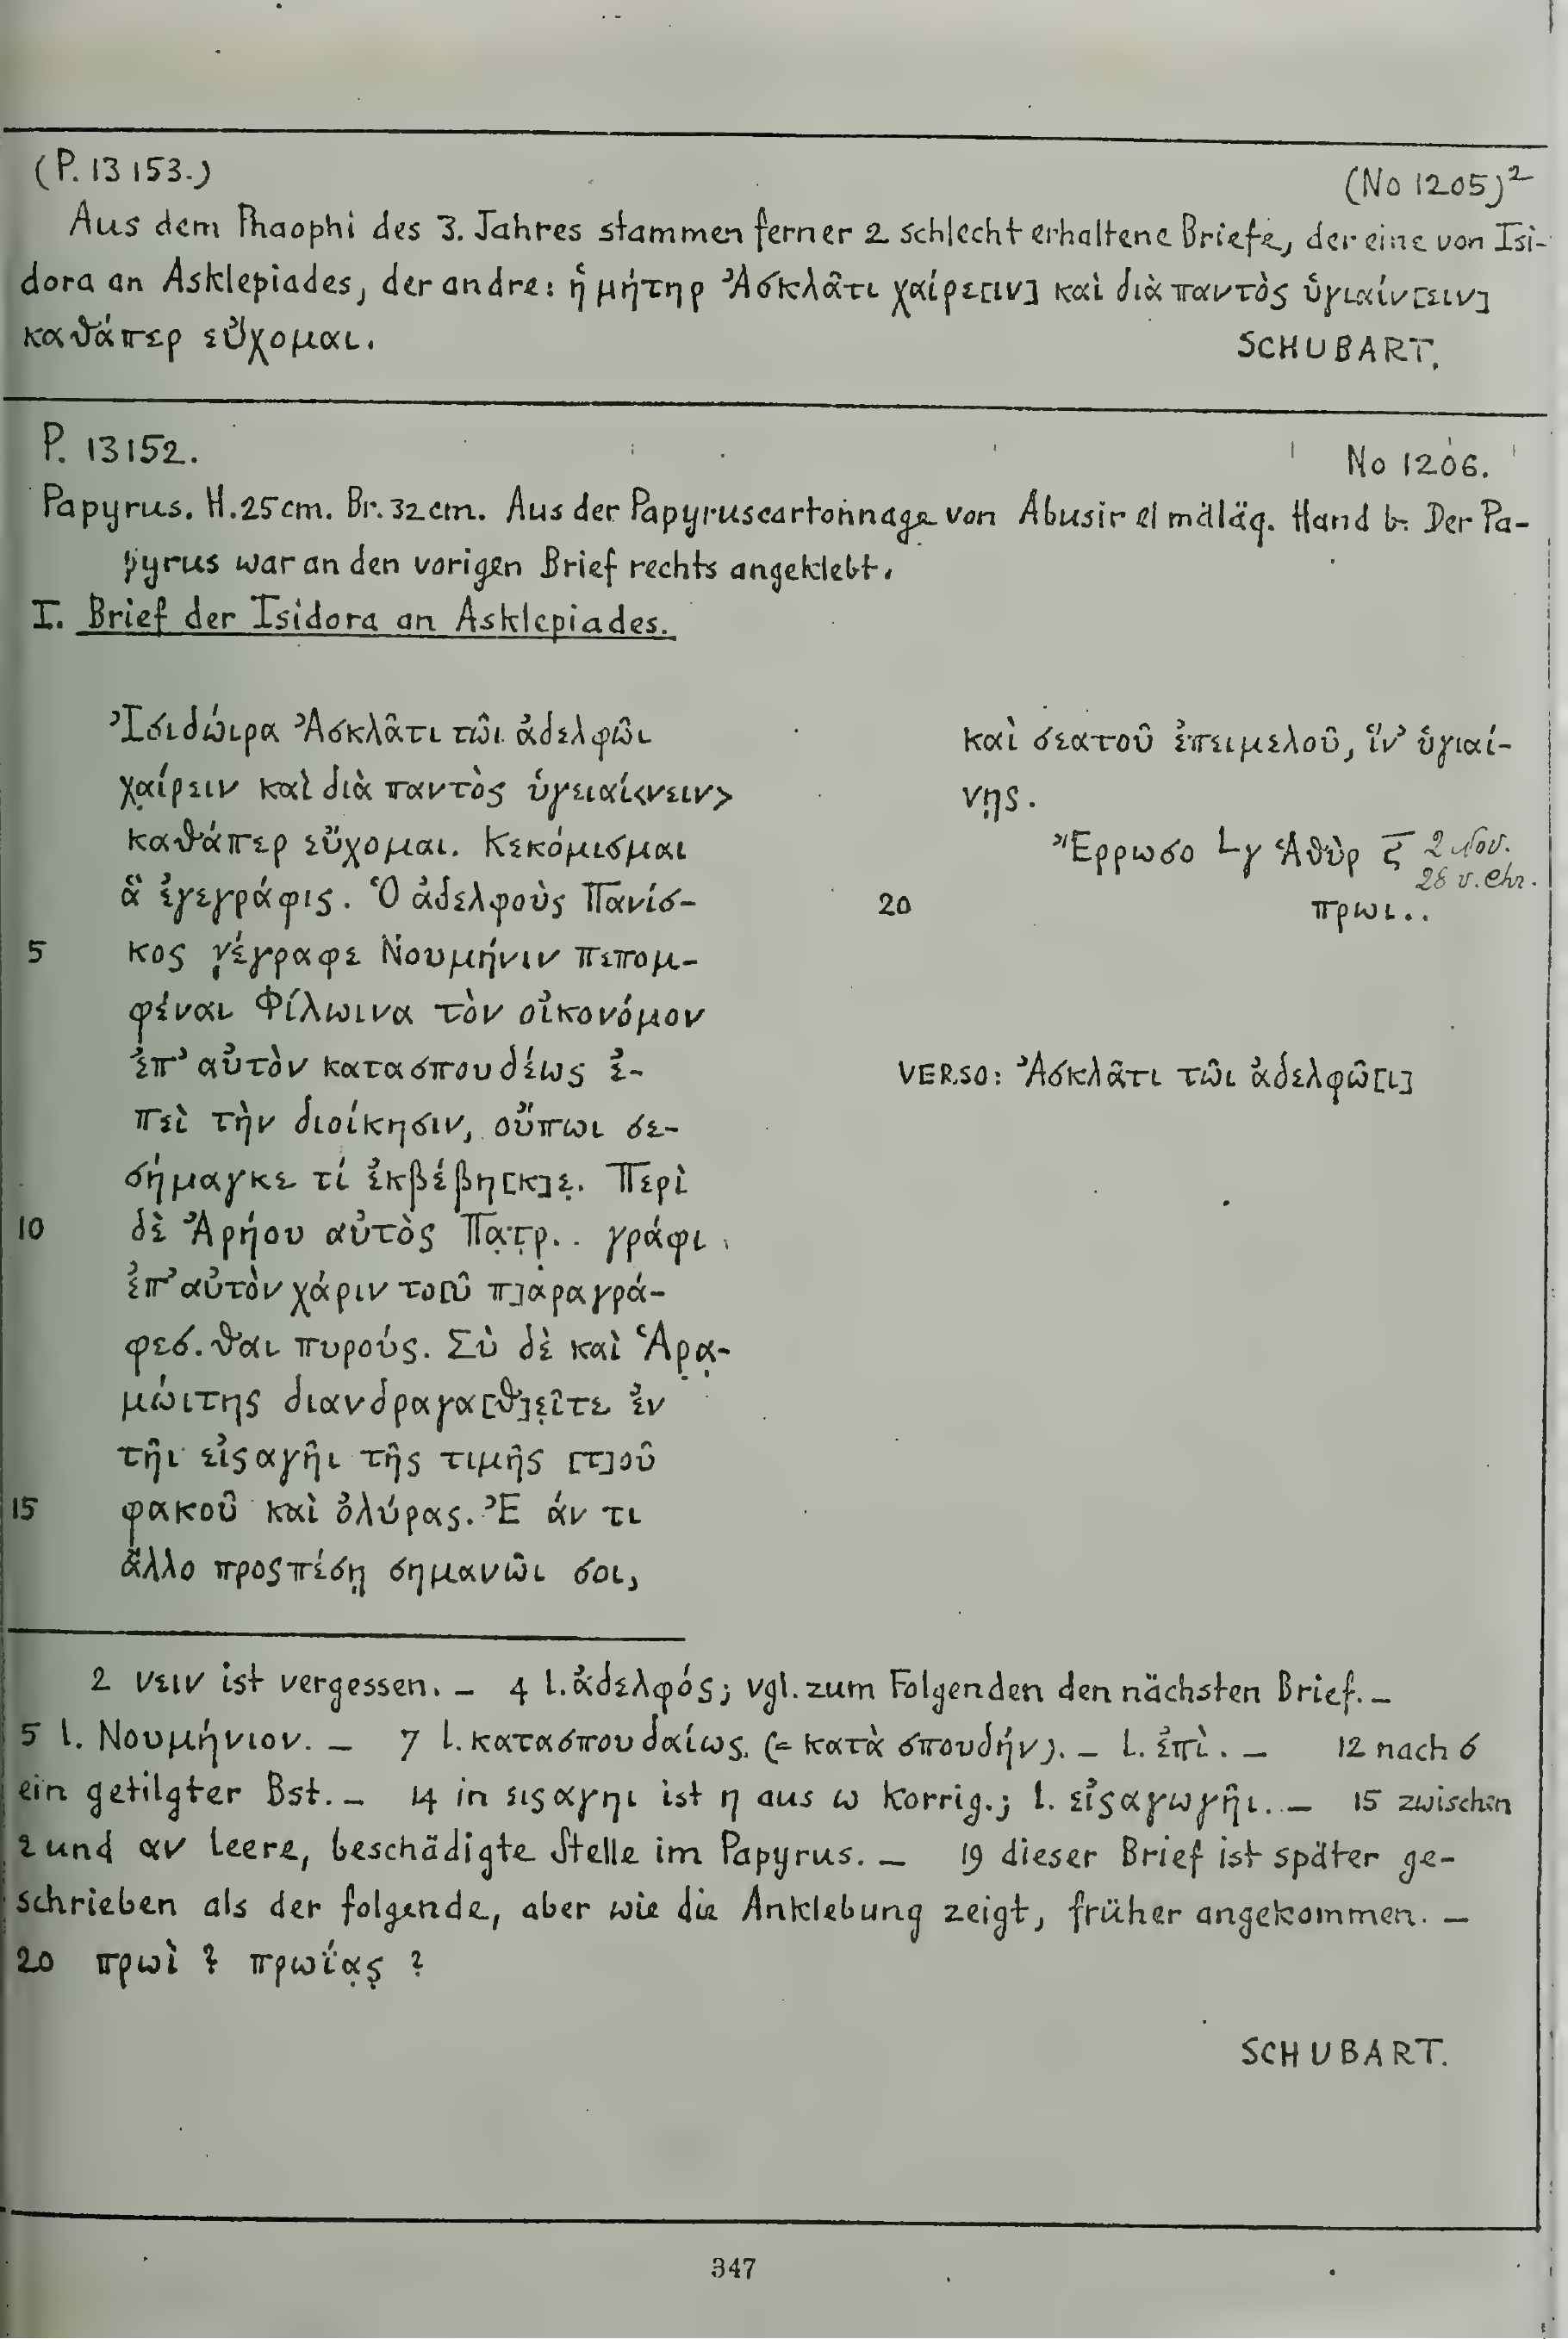 (P. 13153.) (No 1205)²
Aus dem Phaophi des 3. Jahres stammen ferner 2 schlecht erhaltene Briefe, der eine von Isi-
dora an Asklepiades, der andre: ἡ μήτηρ Ἀσκλᾶτι χαίρε[ιν] καὶ διὰ παντὸς ὑγιαίν[ειν]
καθάπερ εὔχομαι. SCHUBART.
P. 13152. No 1206.
Papyrus. H. 25 cm. Br. 32 cm. Aus der Papyruscartonnage von Abusir el mäläq. Hand b. Der Pa-
pyrus war an den vorigen Brief rechts angeklebt.
I. Brief der Isidora an Asklepiades.
Ἰσιδώιρα Ἀσκλᾶτι τῶι ἀδελφῶι
χα̣ίρειν καὶ διὰ παντὸς ὑγειαί<νειν>
καθάπερ εὔχομαι. Κεκόμισμαι
ἃ ἐγεγράφις. Ὁ ἀδελφοὺς Πανίσ-
5 κος γ̣έγραφε Νουμήνιν πεπομ-
φέναι Φίλωινα τὸν οἰκονόμον
ἐπ' αὐτὸν κατασπουδέως ἐ-
πεὶ τὴν διοίκησιν, οὔπωι σε-
σήμαγκε τί ἐκβέβη[κ]ε̣. Περὶ
10 δὲ Ἀρήου αὐτὸς Πα̣τ̣ρ̣.. γράφι
ἐπ' αὐτὸν χάριν το[ῦ π]α̣ραγρά-
φεσ.θαι πυρούς. Σὺ δὲ καὶ Ἁρα̣-
μώιτης διανδραγα[θ]ε̣ῖτε ἐν
τῆι εἰςαγῆι τῆς τιμῆς [τ]οῦ
15 φακοῦ καὶ ὀλύρας. Ἐ άν τι
ἄλλο προςπέσῃ σημανῶι σοι,
καὶ σεατοῦ ἐπειμελοῦ, ἵν' ὑγιαί-
νῃς.
Ἔρρωσο Lγ Ἁθὺρ ϛ̅ 2 Nov.
28 v. Chr.
20 πρωι..
VERSO: Ἀσκλᾶτι τῶι ἀδελφῶ[ι]
2 νειν ist vergessen. — 4 l. ἀδελφός; vgl. zum Folgenden den nächsten Brief. —
5 l. Νουμήνιον. — 7 l. κατασπουδαίως. (= κατὰ σπουδήν). — l. ἐπὶ. — 12 nach σ
ein getilgter Bst. — 14 in ειςαγηι ist η aus ω korrig.; l. εἰςαγωγῆι. — 15 zwischen
ε und αν leere, beschädigte Stelle im Papyrus. — 19 dieser Brief ist später ge-
schrieben als der folgende, aber wie die Anklebung zeigt, früher angekommen. —
20 πρωὶ ? πρωΐα̣ς̣ ?
SCHUBART.
347